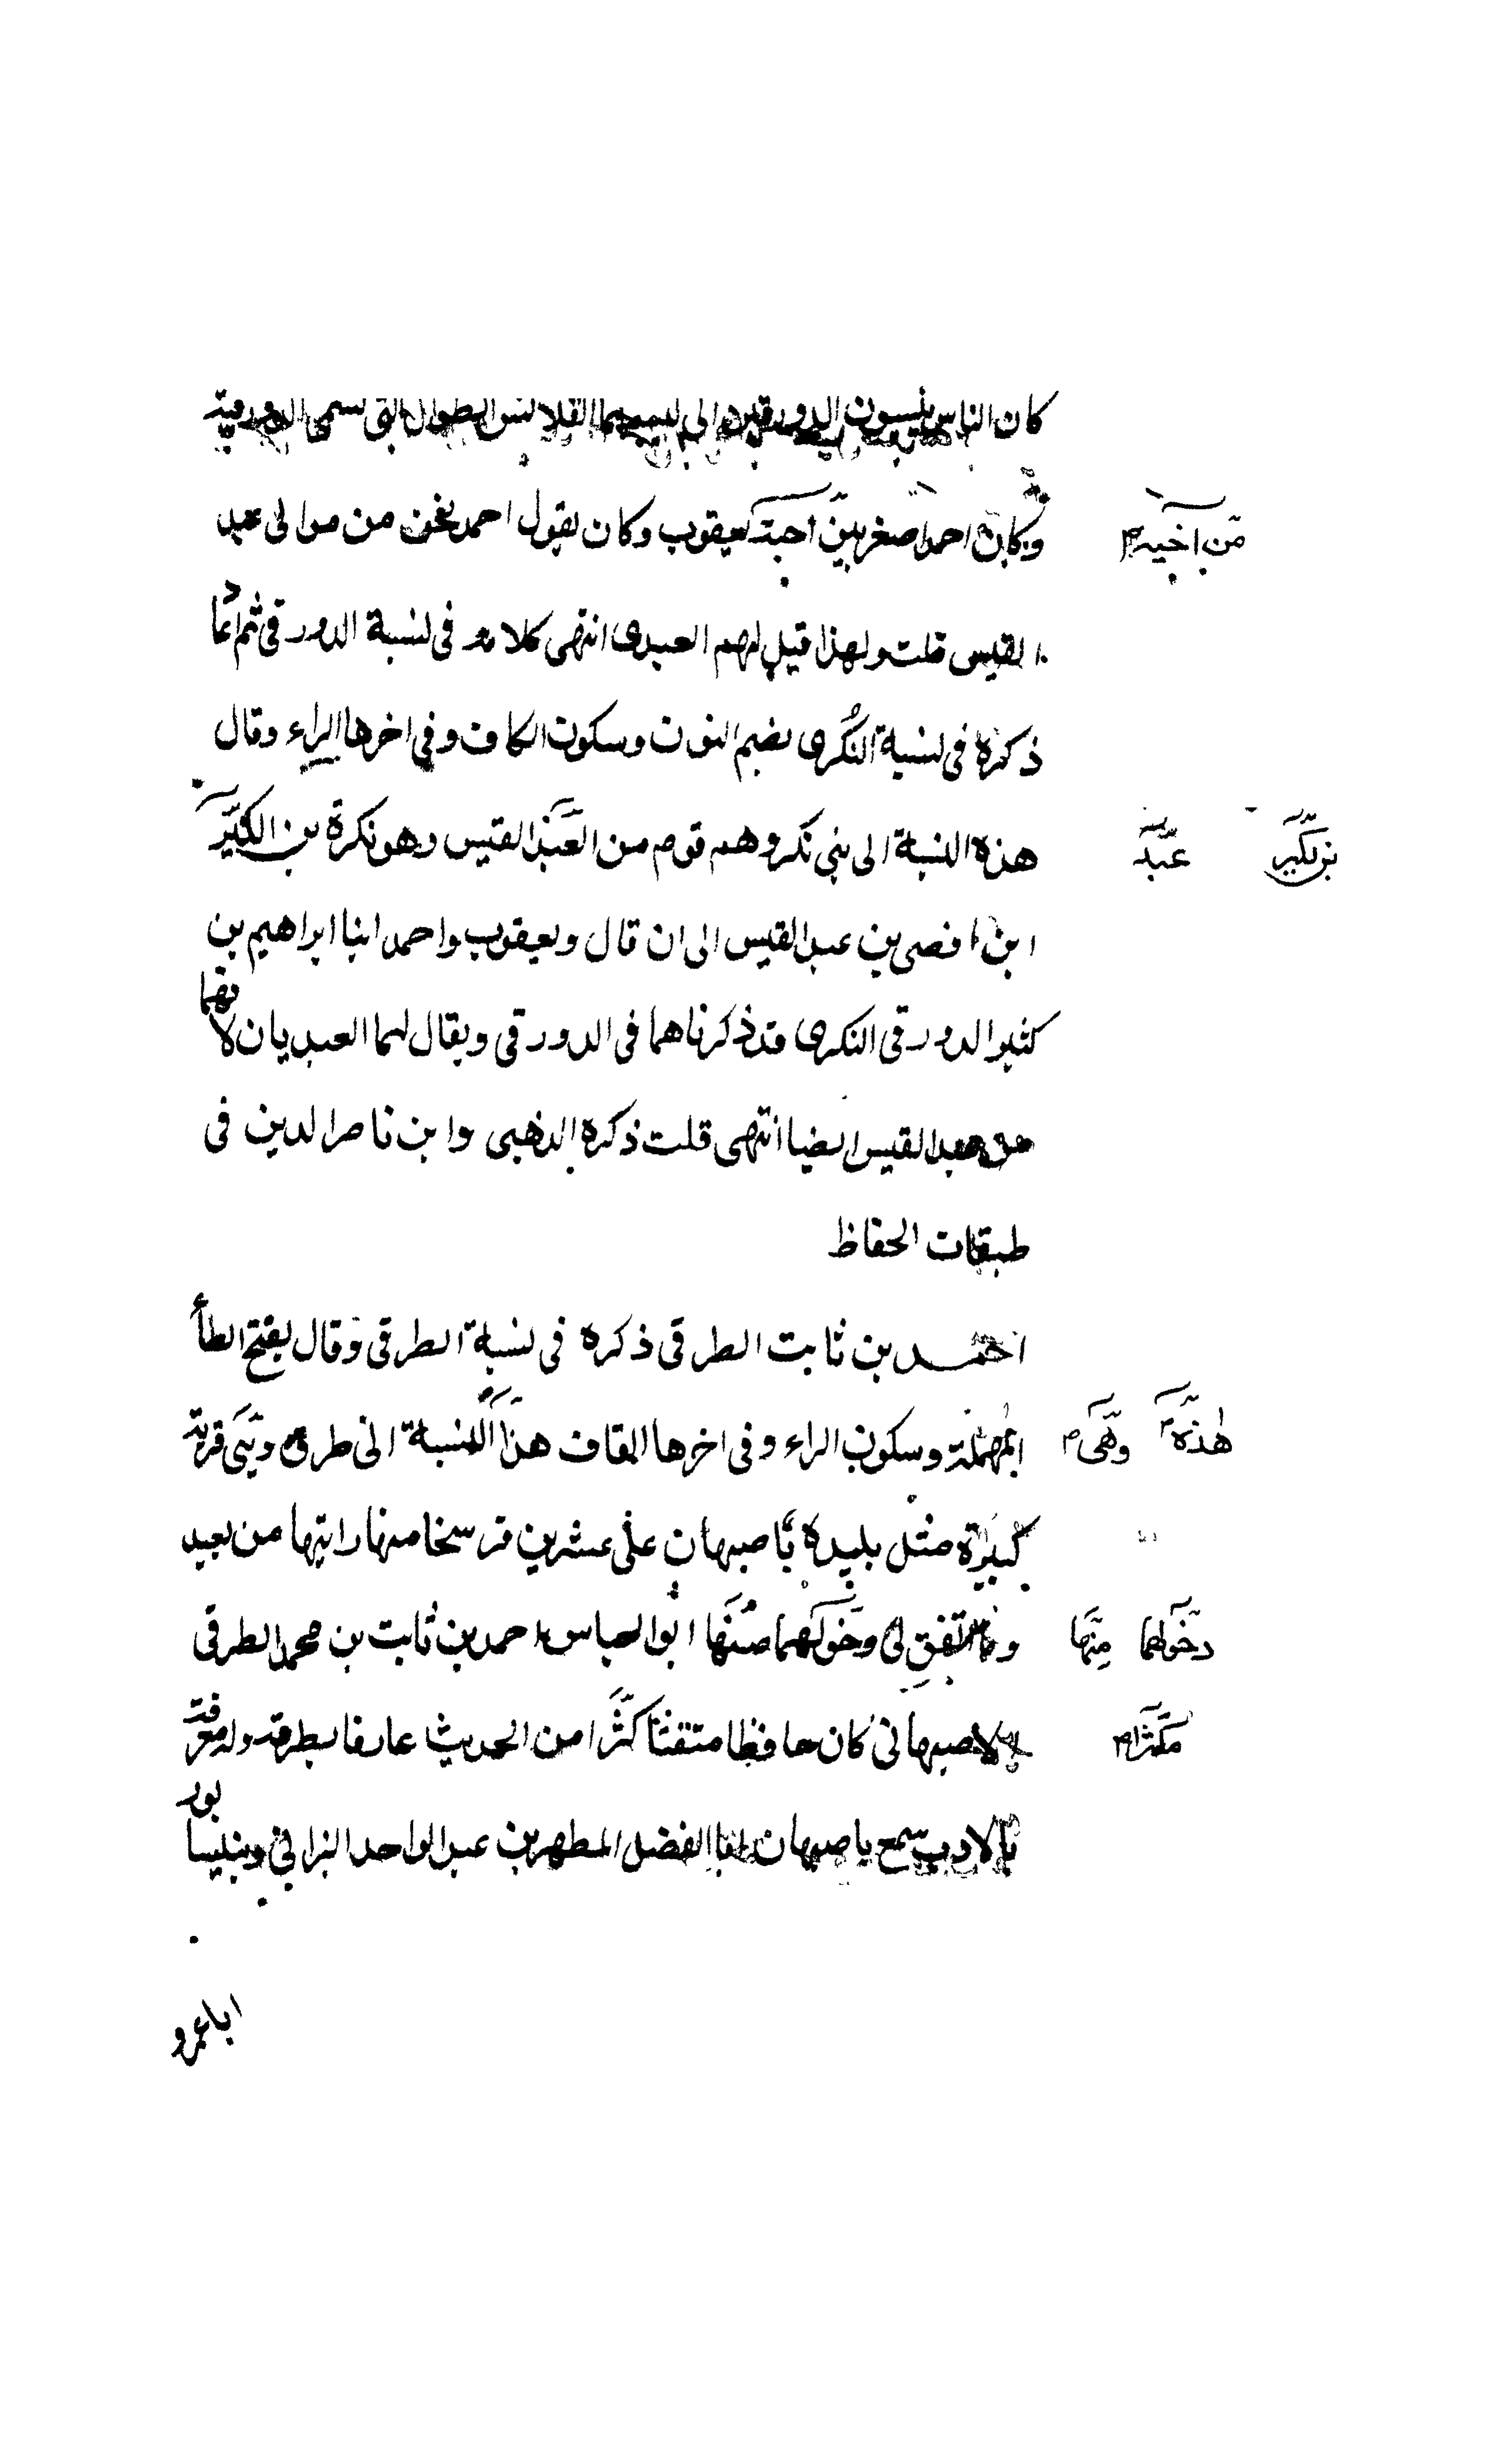 كان الناس ينسبون الدورقيين الى لبسهما القلانس الطوال التى تسمى الدورقية
وكان احمد اصغر بين احبه يعقوب وكان يقول احمد نحن من موالى عبد
من اخيه م
القيس قلت ولهذا قيل لهم العبدى انتهى كلامه فى نسبة الدورقى ثم اعاد
ذكره فى نسبة النكرى بضم النون وسكون الكاف وفى اخرها الراء وقال
هذه النسبة الى بنى نكر وهم قوم من العبد القيس وهو نكرة بن الكير
عبد
بن لكير
ابن افصى بن عبد القيس الى ان قال ويعقوب واحمد ابنا ابراهيم بن
كثير الدورقى النكرى قد ذكرناهما فى الدورقى ويقال لهما العبديان لانهما
من عبد القيس ايضا انتهى قلت ذكره الذهبى وابن ناصر الدين فى
طبقات الحفاظ
احمد بن ثابت الطرقى ذكره فى نسبة الطرقى وقال بفتح الطأ
المهملة وسكون الراء وفى اخرها القاف هذا النسبة الى طرق وهى قرية
وهى م
هذه م
كبيرة مثل بليدة باصبهان على عشرين فرسخا منها رايتها من بعيد
وما اتفق لى وخولهما صنفها ابو العباس احمد بن ثابت بن محمد الطرقى
منها
دخولها
الاصبهانى كان حافظا متقنا كثرا من الحديث عارفا بطرقه وله معرفة
مكثرا م
بالادب سمع باصبهان ابا الفضل المطهر بن عبد الواحد البزانى وبنيسابور
ابا عمرو